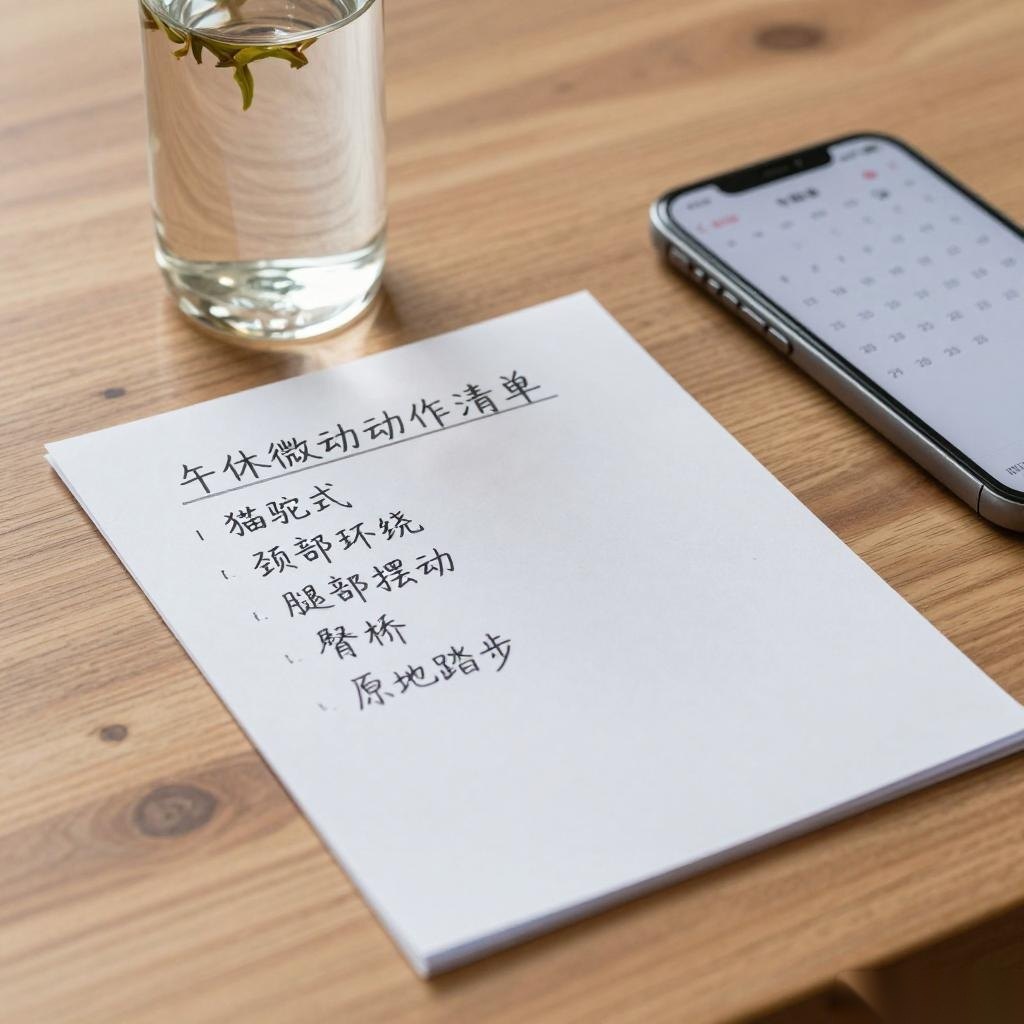 午休微动动作清单
猫驼式
颈部环绕
腿部摆动
臀桥
原地踏步